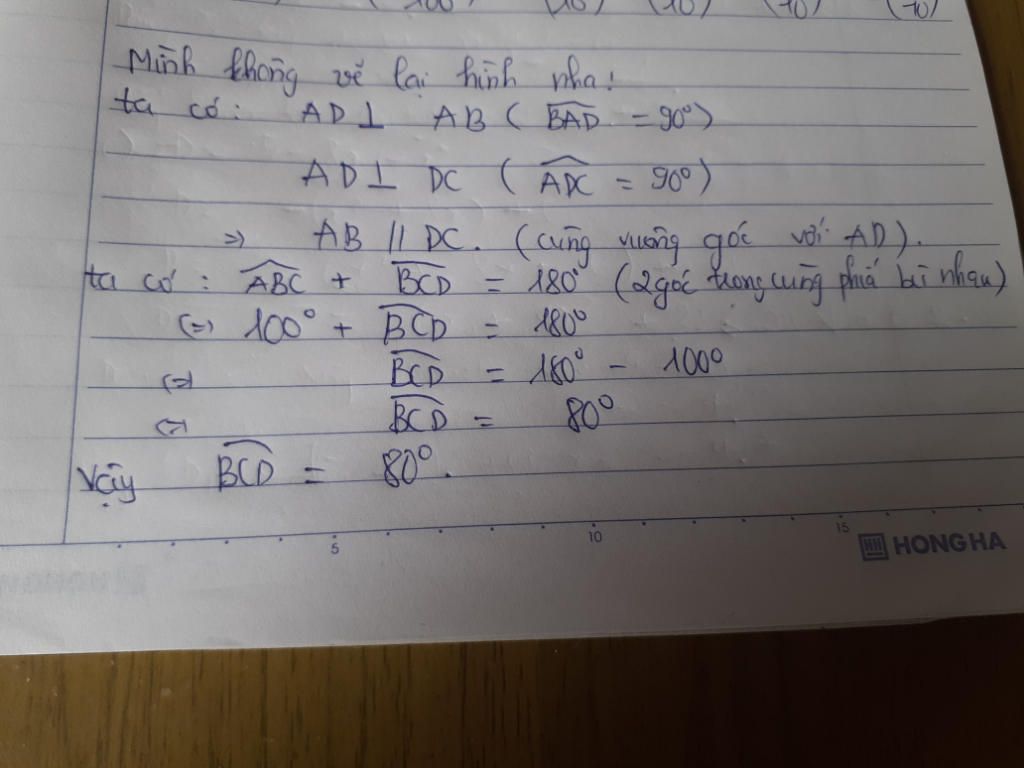 (10) (10) (10)
Mình không vẽ lại hình nha!
ta có: AD ⊥ AB ( \widehat{BAD} = 90⁰)
AD ⊥ DC ( \widehat{ADC} = 90⁰)
=> AB // DC. (cùng vuông góc với AD).
ta có: \widehat{ABC} + \widehat{BCD} = 180⁰ (2 góc trong cùng phía bù nhau)
(=) 100⁰ + \widehat{BCD} = 180⁰
(=) \widehat{BCD} = 180⁰ - 100⁰
(=) \widehat{BCD} = 80⁰
Vậy \widehat{BCD} = 80⁰.
5 10 15
HONG HA